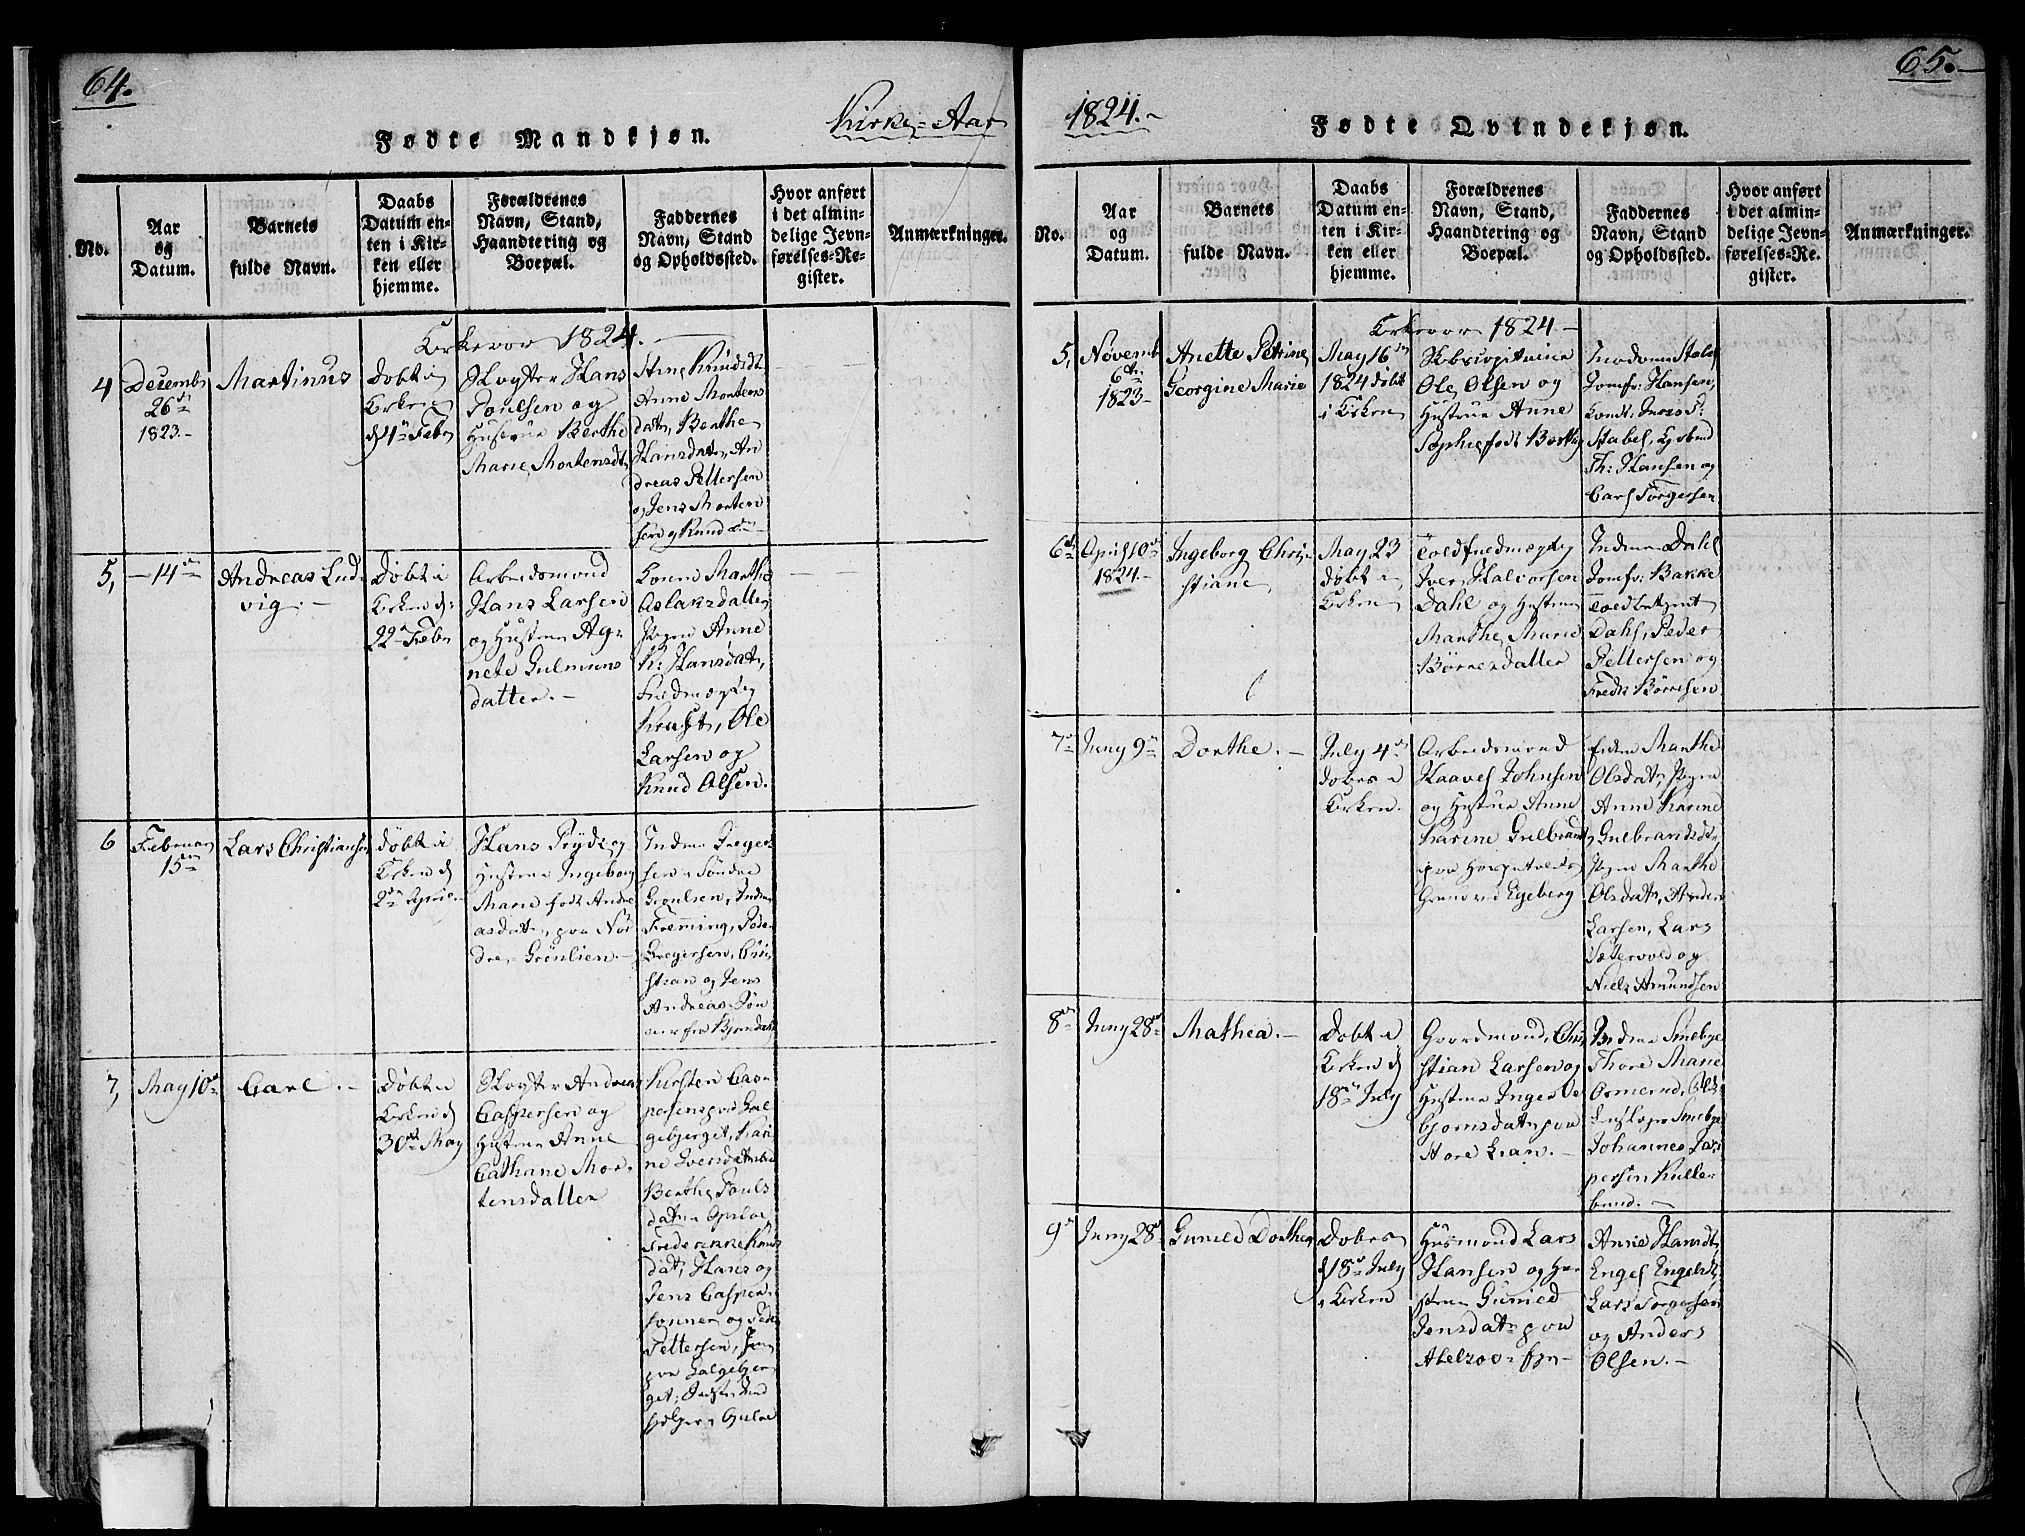 64.
Kirke-Aar
Fødte Mandkjøn.
No.
Aar
og
Datum.
Barnets
fulde Navn.
Daabs
Datum en-
ten i Kir-
ken eller
hjemme.
Forældrenes
Navn, Stand,
Haandtering og
Boepæl.
Faddernes
Navn, Stand
og Opholdssted.
Hvor anført
i det almin-
delige Jevn-
førelses-Re-
gister.
Anmærkninger.
Kirkeaar 1824.
4
Decembr
26de
1823.
Martinus
Døbt i
Kirken
d 1te Febr
Hans
Poulsen og
Hustrue Berthe
Marie Mortensdt
Anne Knudsdt
Anne Mortens
datr, Berthe
Hansdatr, An
dreas Pettersen
og Jens Morten
sen og Knud do
5,
14de
Andreas Lud-
vig.
Døbt i
Kirken d:
22de Febr
Arbeidsmand
Hans Larsen
og Hustrue Ag-
nete Gulmuns
datter.
Marthe
Aslaksdatter
Pigen Anne
K: Hansdatr,
Ole
Larsen og
Knud Olsen.
6
Februar
15de
Lars Christiansen
Døbt i
Kirken d
2de April
Hans Prydz og
Hustrue Ingeborg
Marie født Andre
asdatr, paa Nor
dre Grønlien.
Madme Greger
sen Søndre
Grønlien, Madme
Flemming, Peder
Gregersen, Chri
stian og Jens
Andreas Søn
ner fra Bjerndal
7,
May 10de
Carl.
Døbt i
Kirken d
30te May
Andreas
Caspersen og
Hustrue Anne
Cathrine Mor-
tensdatter
Kirsten Cas-
persens paa Gal
gebjerget, Kari
ne Iversdatr
Berthe Pouls
datr Opsloe
Frederikke Knuds
datr, Hans og
Jens Casper
sønner og Peder
Pettersen,
paa Galgebjer
get,
65.
1824.
Fødte Qvindekjøn.
No.
Aar
og
Datum.
Barnets
fulde Navn.
Daabs
Datum en-
ten i Kir-
ken eller
hjemme.
Forældrenes
Navn, Stand,
Haandtering og
Boepæl.
Faddernes
Navn, Stand
og Opholdssted.
Hvor anført
i det almin-
delige Jevn-
førelses-Re-
gister.
Anmærkninger.
Kirkeaar 1824
5,
Novemb
6te
1823
Anette Petrine
Georgine Marie
May 16de
1824 døbt
i Kirken
Skibscapitaine
Ole Olsen og
Hustrue Anne
Sophie født
Madame Stabel
Jomfr: Hansen,
Stabel,
Th: Hansen og
Carl Torgersen
6te
April 10de
1824.
Ingeborg Chri-
stiane
May 23
døbt i
Kirken
Toldfuldmægtig
Iver Halvorsen
Dahl og Hustrue
Marthe Marie
Børresdatter
Madme Dahl
Jomfr: Bakke
Toldbetjent
Dahl, Peder
Pettersen og
Fredk Børresen
7de
Juny 9de
Dorthe.
July 4de
døbes i
Kirken.
Arbeidsmand
Haavel Johnsen
og Hustrue Anne
Karine Gulbrands
paa
Grund ved Egeberg
Marthe
Olsdatr, Pigen
Anne Karine
Gulbrandsdtr,
Pigen Marthe
Olsdatr, Anders
Larsen, Lars
og
Niels Amundsen
8de
Juny 28de
Mathea.
Døbt i
Kirken d
18de July
Gaardmand, Chri
stian Larsen og
Hustrue Inger Ve
bjørnsdatr paa
Store Lian.
Smebye
Thore Marie
Ormerud, Ole
Smebye
Johannes Jas
persen Kulle-
bund.
9de
Juny 28de
Gunild Dorthea
Døbes
d 18de July
i Kirken
Husmand Lars
Hansen og Hu-
strue Gunild
Jensdatr paa
Abelsøe
Anne Hansdt,
Engel Engelsdt,
Lars Torgersen
og Anders
Olsen.